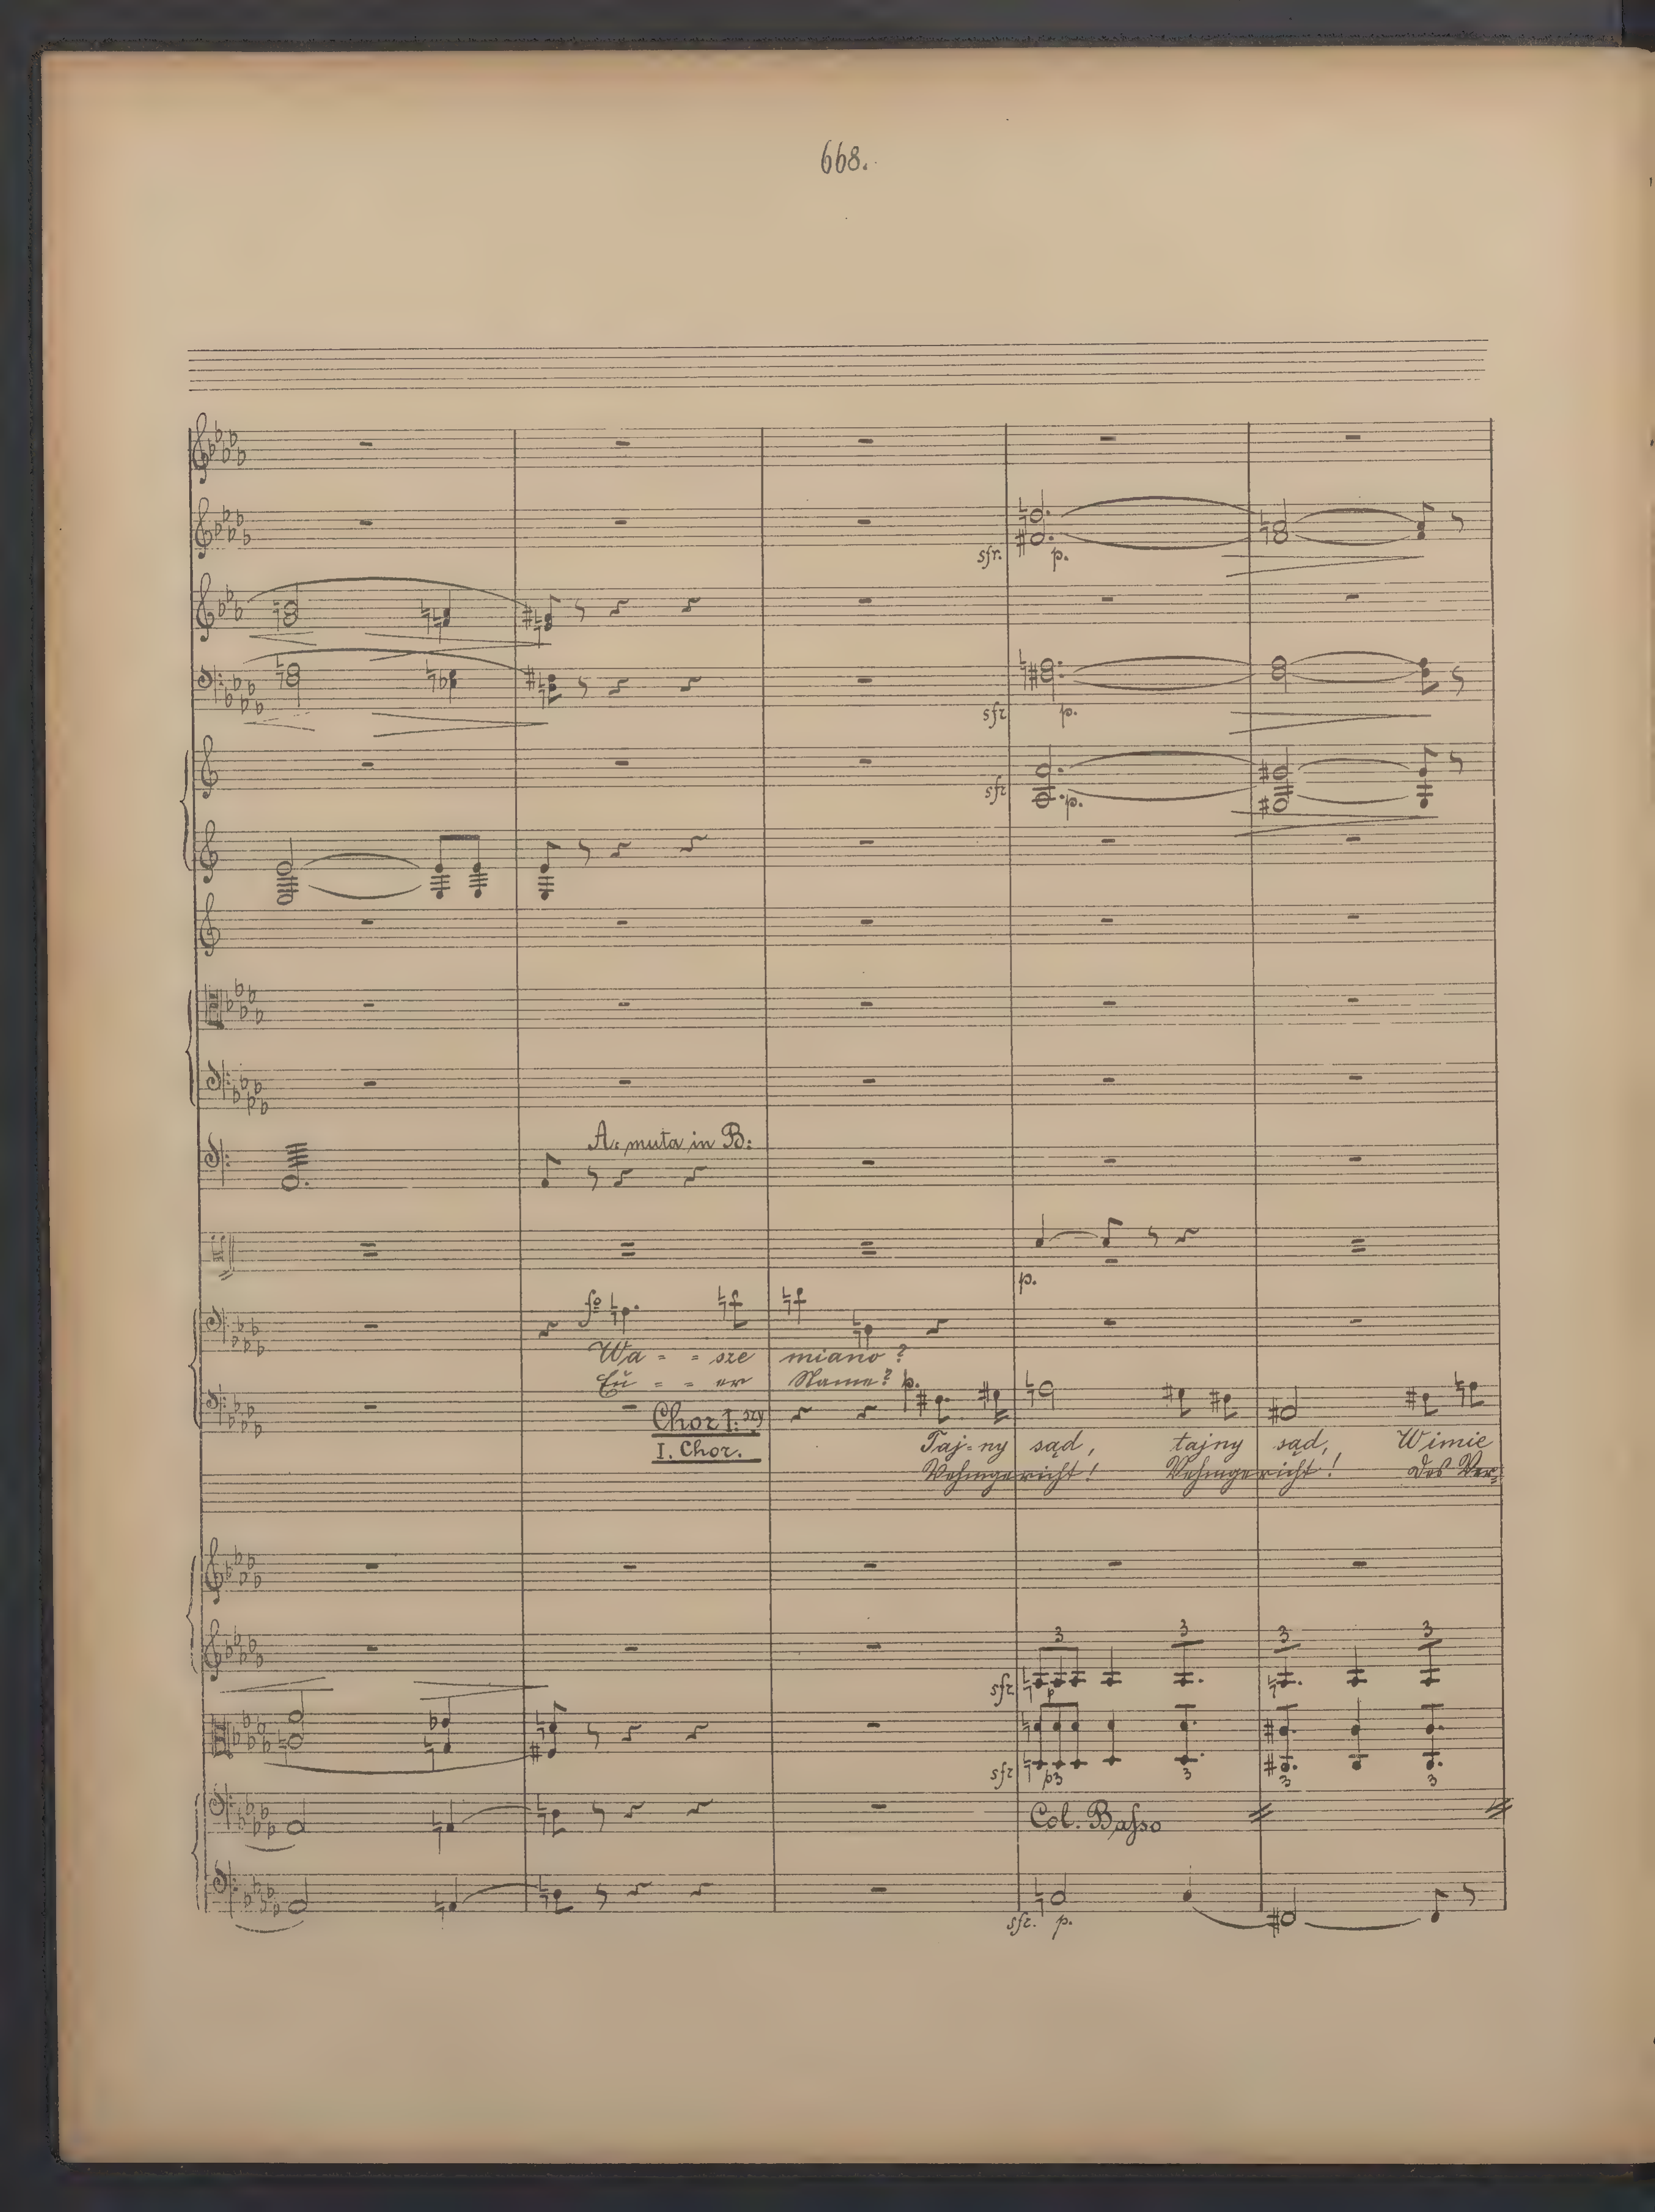 668.
sfr. p.
sfz p.
sfz p.
A: muta in B:
p.
fo
Wa - - sze miano?
Eŭ - - er Name? p.
Chor I: szy
I. Chor.
Taj-ny sąd, tajny sąd, W imie
Vehmgericht! Vehmgericht! des Ver-
3 3 3 3
sfz p
sfz p 3 3 3 3
Col. Baſso
sfz. p.